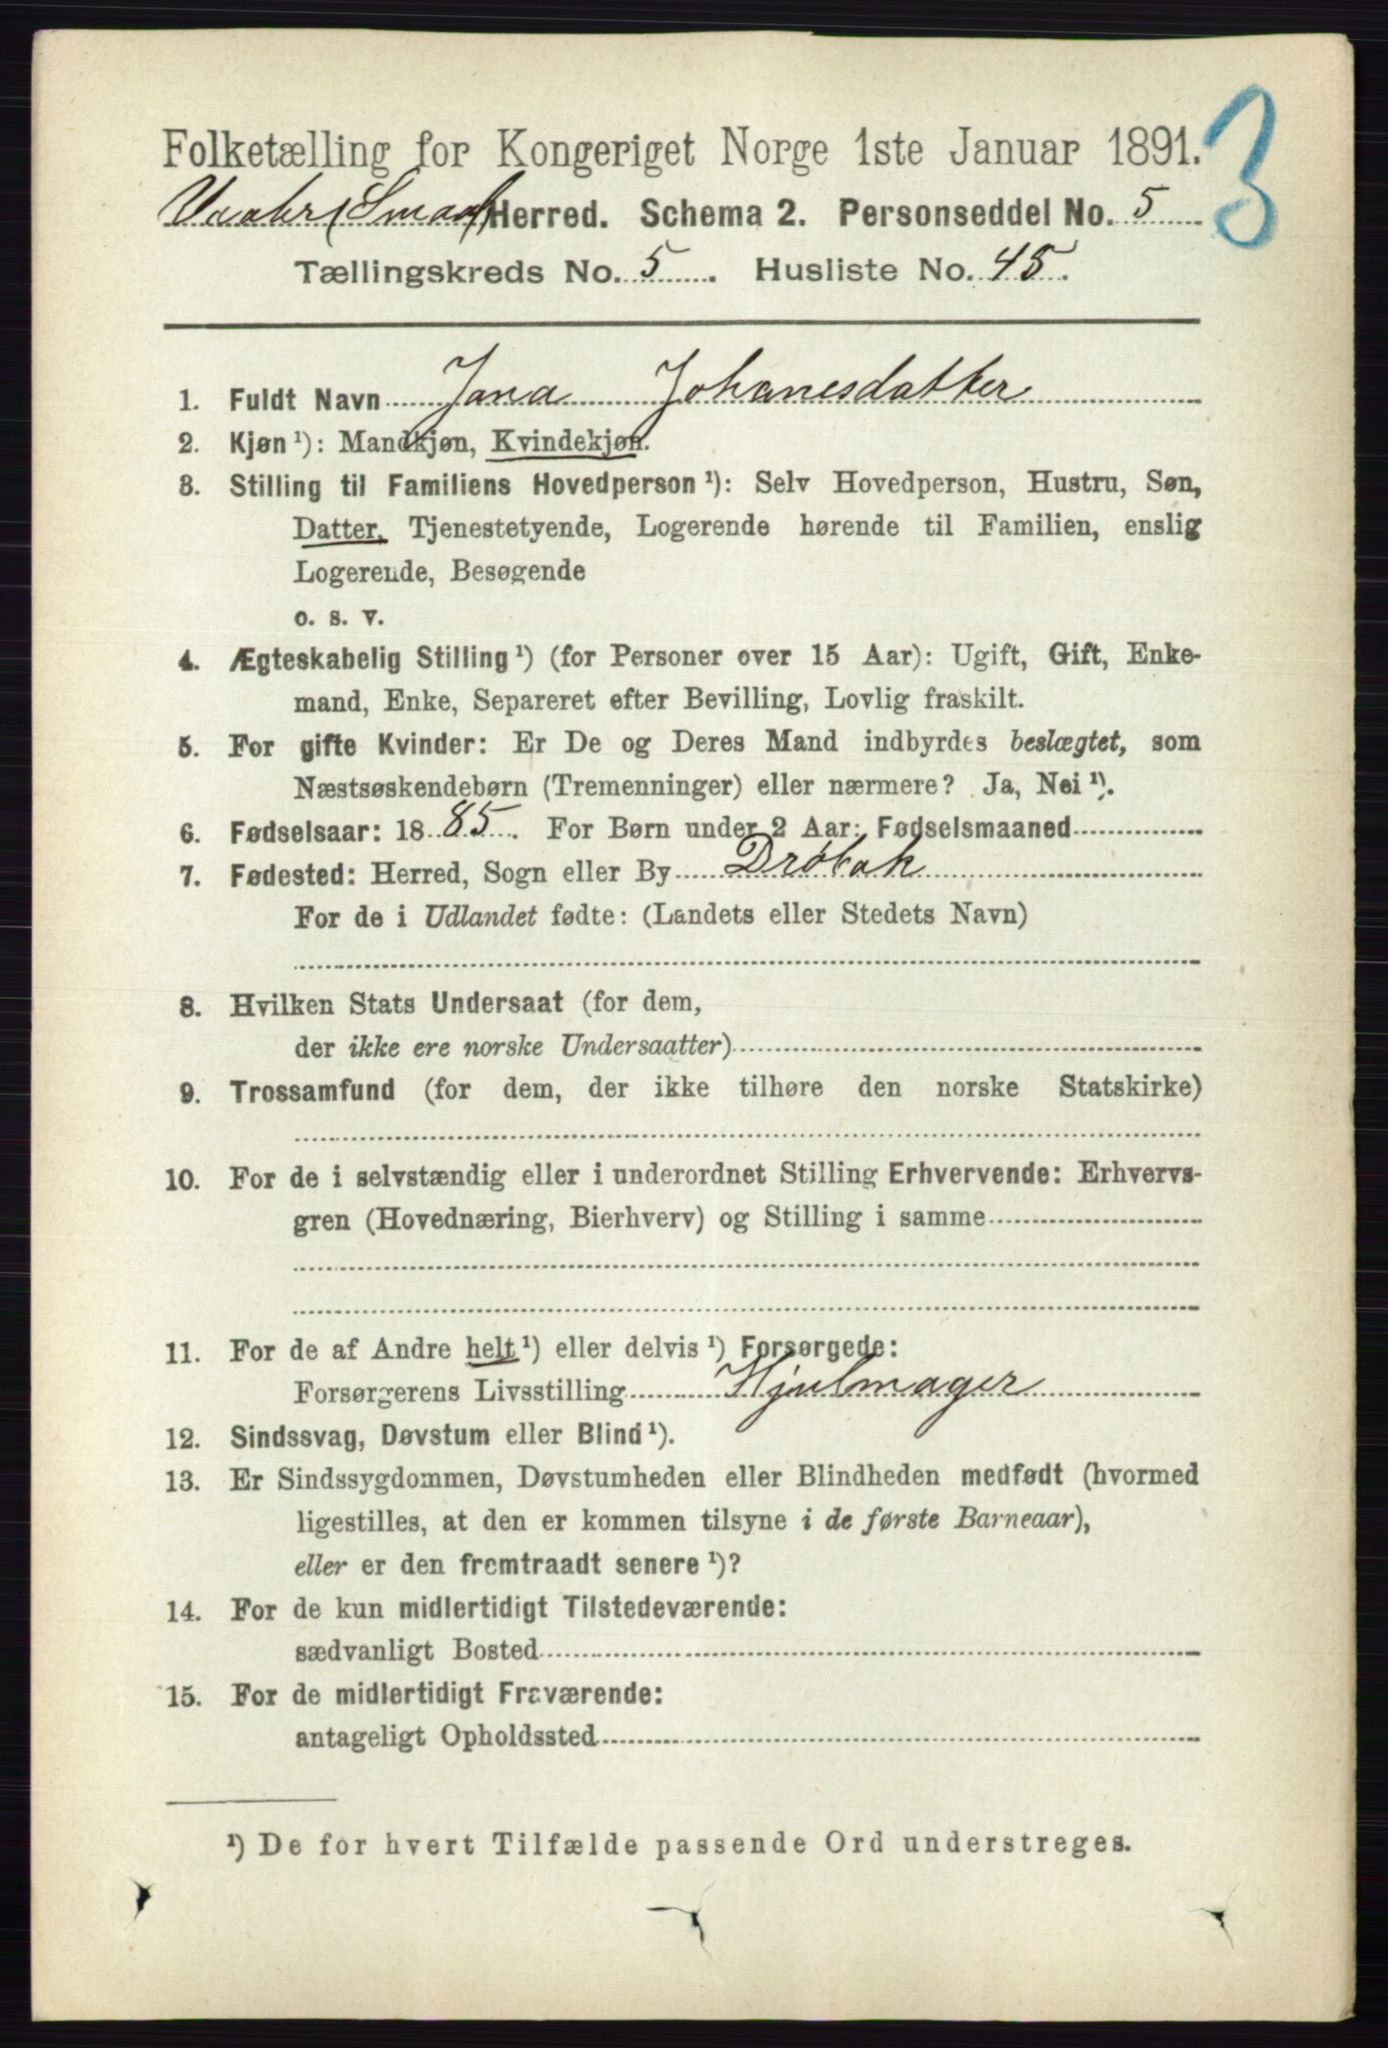 3
Folketælling for Kongeriget Norge 1ste Januar 1891.
Vaaler (Smaal) Herred. Schema 2. Personseddel No. 5
Tællingskreds No. 5. Husliste No. 45.
1. Fuldt Navn Jana Johanesdatter
2. Kjøn ¹): Mandkjøn, Kvindekjøn.
3. Stilling til Familiens Hovedperson ¹): Selv Hovedperson, Hustru, Søn,
Datter, Tjenestetyende, Logerende hørende til Familien, enslig
Logerende, Besøgende
o. s. v.
4. Ægteskabelig Stilling ¹) (for Personer over 15 Aar): Ugift, Gift, Enke-
mand, Enke, Separeret efter Bevilling, Lovlig fraskilt.
5. For gifte Kvinder: Er De og Deres Mand indbyrdes beslægtet, som
Næstsøskendebørn (Tremenninger) eller nærmere? Ja, Nei ¹).
6. Fødselsaar: 1885. For Børn under 2 Aar: Fødselsmaaned
7. Fødested: Herred, Sogn eller By Drøbak
For de i Udlandet fødte: (Landets eller Stedets Navn)
8. Hvilken Stats Undersaat (for dem,
der ikke ere norske Undersaatter)
9. Trossamfund (for dem, der ikke tilhøre den norske Statskirke)
10. For de i selvstændig eller i underordnet Stilling Erhvervende: Erhvervs-
gren (Hovednæring, Bierhverv) og Stilling i samme
11. For de af Andre helt ¹) eller delvis ¹) Forsørgede:
Forsørgerens Livsstilling Hjulmager
12. Sindssvag, Døvstum eller Blind ¹).
13. Er Sindssygdommen, Døvstumheden eller Blindheden medfødt (hvormed
ligestilles, at den er kommen tilsyne i de første Barneaar),
eller er den fremtraadt senere ¹)?
14. For de kun midlertidigt Tilstedeværende:
sædvanligt Bosted
15. For de midlertidigt Fraværende:
antageligt Opholdssted
¹) De for hvert Tilfælde passende Ord understreges.